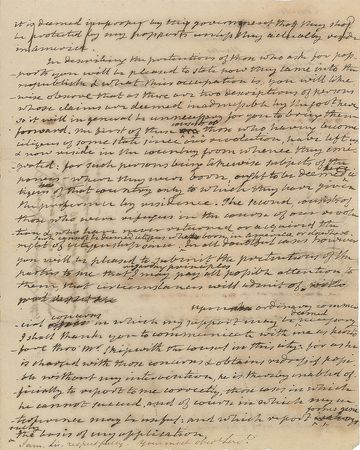 it is deemed improper by this government that they should
be protected by my passports unless they actually reside
in america.
In describing the pretentions of those who ask for pass-
ports you will be pleased to state how they came into the
republic & what their occupation is. You will like-
wise observe that as there are two descriptions of persons
whose claims are deemed inadmissible by the former
so it will in general be unnecessary for you to bring them
forward. The first of these are those who having become
citizens of some state since our revolution, have left us
& now reside in the country from whence they emi-
grated; for such persons being likewise subjects of the
powers where they were born, ought to be deemed ci-
tizens of that country only to which they have given
the preference by residence. The second consists of
those who were refugees in the course of our revolu-
tion & who have never returned or acquired the
right of citizenship since. In all doubtful cases however
you will be pleased to submit the pretentions of the
parties to me that I may pay all possible attention to
them, that circumstances will admit of.
upon
concerns in which my support may be necessary
I shall thank you to communicate with me as hereto-
fore thro' Mr. Skipwith the consul in this city. For as he
is charged with those concerns & obtains redress if possi-
ble without my intervention, he is thereby enabled of-
ficially to report to me correctly, those cases in which
he cannot succeed, and of course in which my in-
terference may be useful; and which report
the basis of my application.
I am Sir, respectfully your most obed